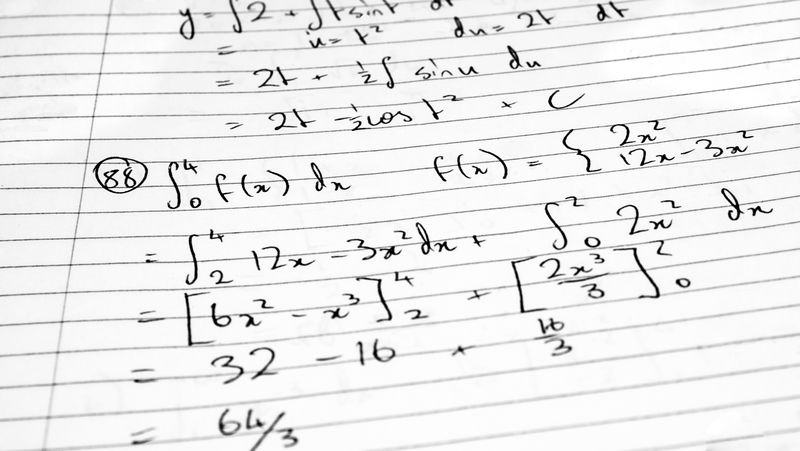 y = ∫2 + ∫t sint dt
= u = t² du = 2t dt
= 2t + ½∫ sinu du
= 2t - ½cos t² + C
88 ∫₀⁴ f(x) dx f(x) = { 2x²
12x - 3x²
= ∫₂⁴ 12x - 3x² dx + ∫₀² 2x² dx
= [6x² - x³]₂⁴ + [2x³/3]₀²
= 32 - 16 + 16/3
= 64/3